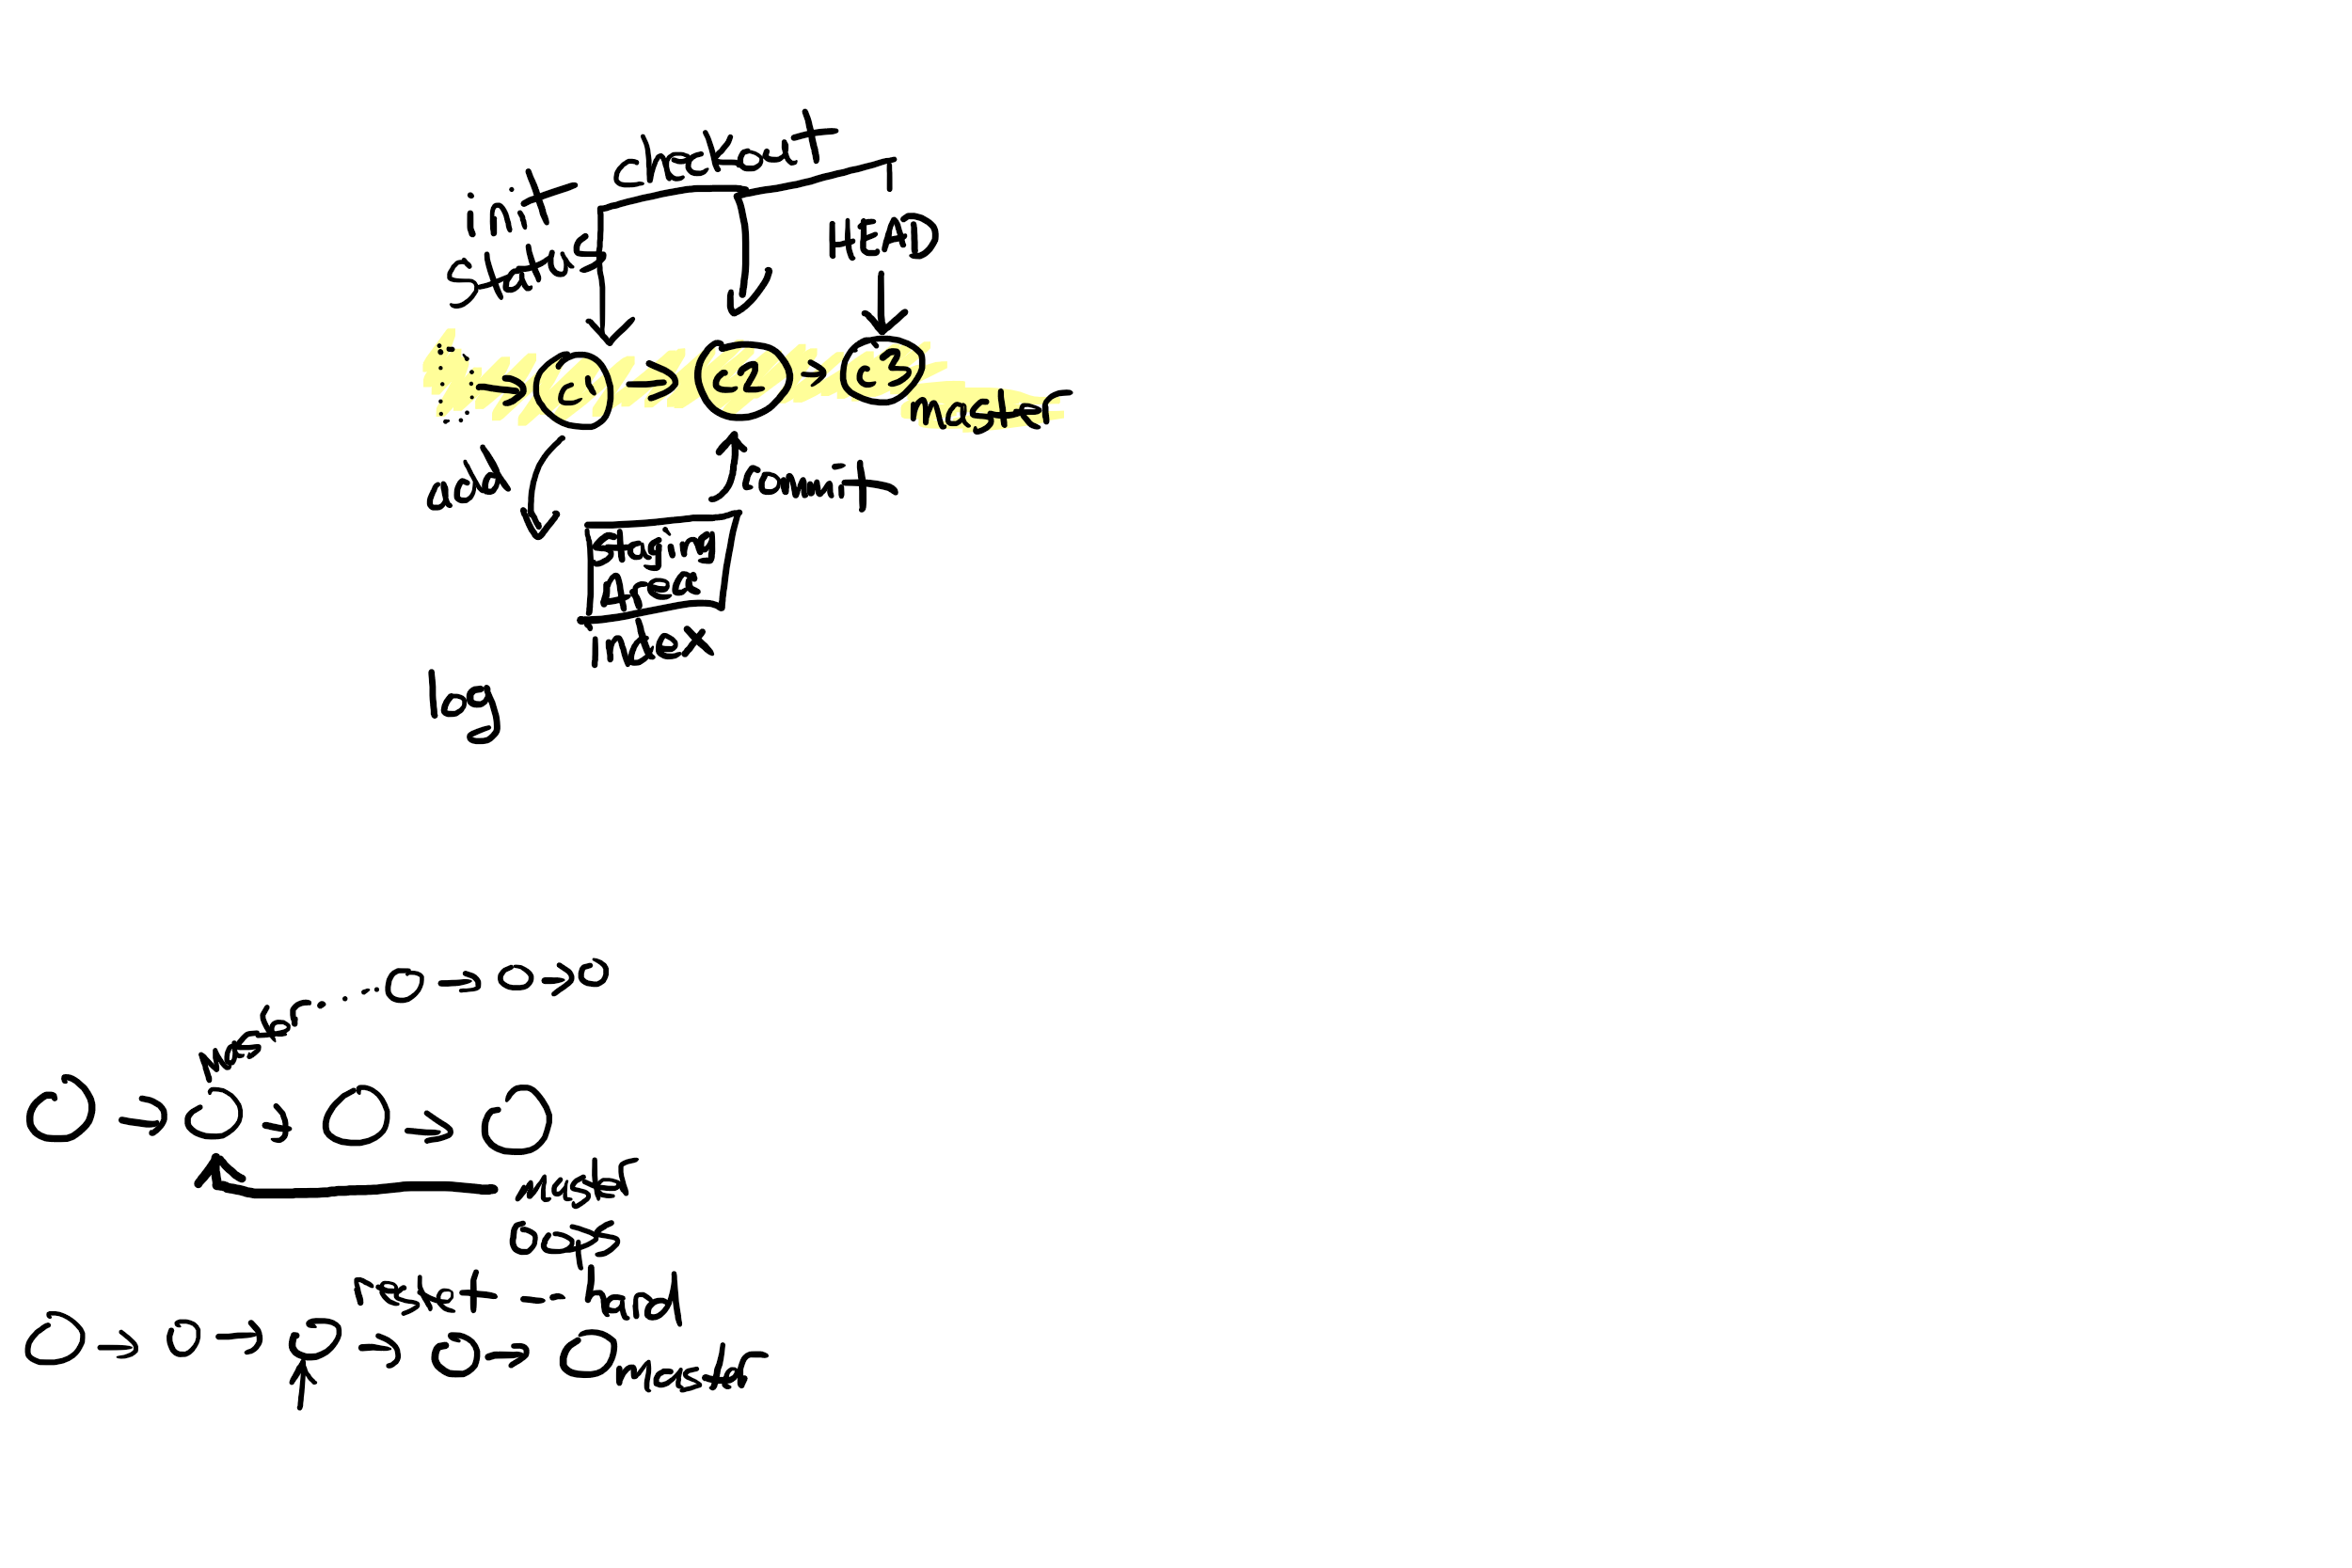 checkout
init
status
HEAD
c1
c2
c3
master
add
commit
Staging
Area
index
log
master
master
oops
reset --hard
master